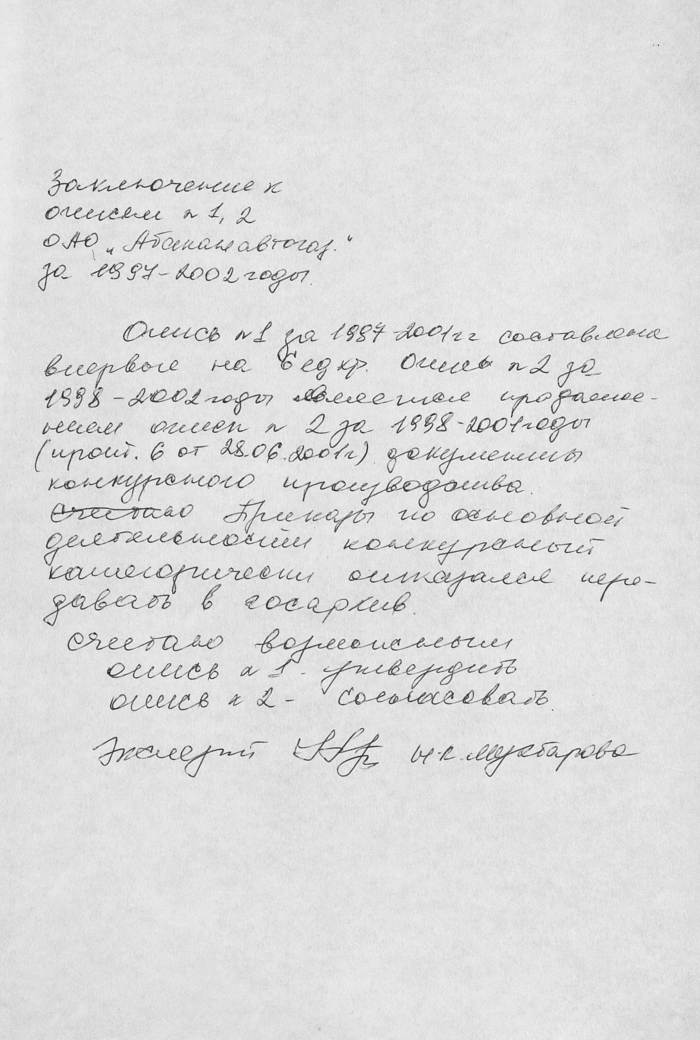 Заключение к
описям № 1, 2
ОАО „Абаканавтогаз."
за 1997-2002 годы.
Опись № 1 за 1997-2001 гг составлена
впервые на 6 ед хр. Опись № 2 за
1998-2002 годы является продолже-
нием описи № 2 за 1998-2001 годы
(прот. 6 от 28.06.2001г) документы
конкурсного производства.
считаю Приказы по основной
деятельности конкурсный
категорически отказался пере-
давать в госархив.
считаю возможным
опись № 1 - утвердить
опись № 2 - согласовать.
Эксперт Н.К. Мухтарова